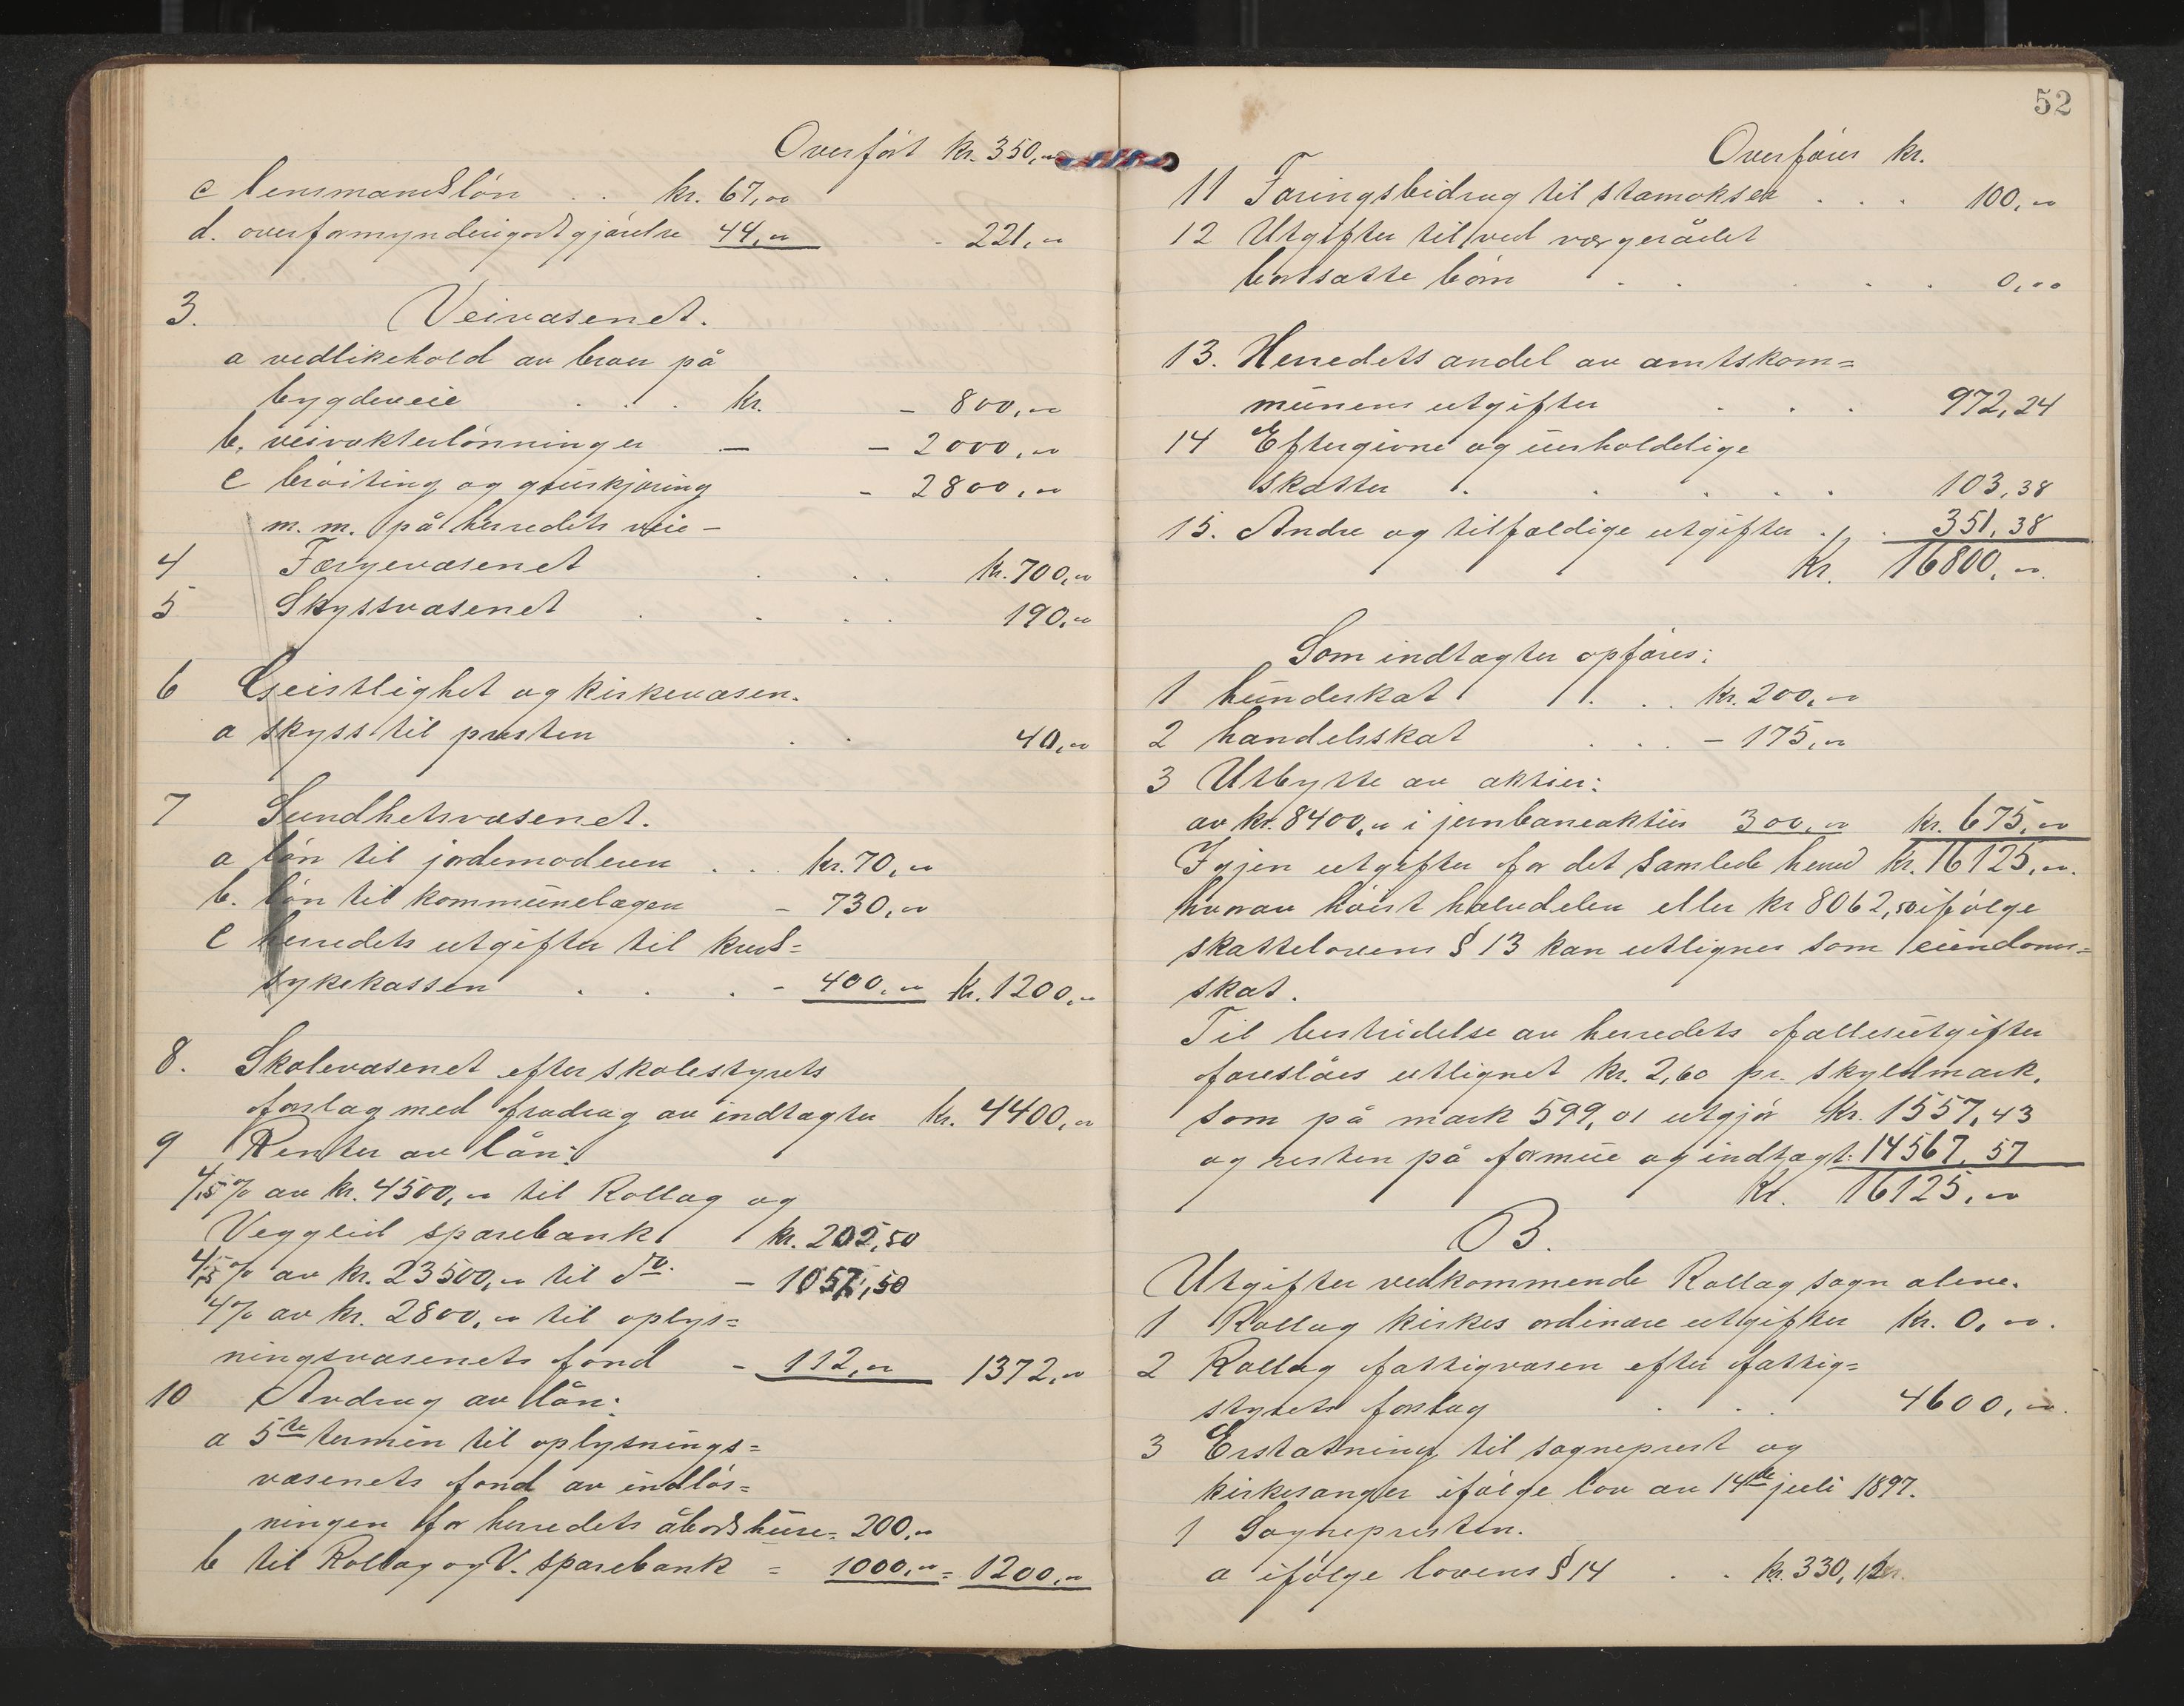 Overført kr. 350,00
c lensmandsløn . . kr. 67,00
d. overformynderigodtgjørelse 44,00 - 221,00
3. Veivæsenet.
a vedlikehold av broer på
bygdeveie . . . kr. - 800,00
b. veivokterlønninger — - 2000,00
c brøiting og gruskjøring - 2800,00
m. m. på herredets veie -
4 Færgevæsenet . . . kr. 700,00
5 Skyssvæsenet . . . . 190,00
6 Geistlighet og kirkevæsen.
a skyss til presten . . 40,00
7 Sundhetsvæsenet.
a løn til jordemoderen . . . kr. 70,00
b. løn til kommunelægen - 730,00
c herredets utgifter til kreds=
sykekassen . . . - 400,00 kr. 1200,00
8. Skolevæsenet efter skolestyrets
forslag med fradrag av indtægter kr. 4400,00
9 Renter av lån:
4,5% av kr. 4500,00 til Rollag og
Veggli sparebank kr. 202,50
4,5% av kr. 23500,00 til do. - 1057,50
4% av kr. 2800,00 til oplys=
ningsvæsenets fond - 112,00 1372,00
10 Avdrag av lån:
a 5te termin til oplysnings=
væsenets fond av indløs=
ningen for herredets åbodshuse - 200,00
b til Rollag og V. sparebank = 1000,00 = 1200,00
52
Overføres kr.
11 Foringsbidrag til stamokser . . . 100,00
12 Utgifter til ved vergerådet
bortsatte børn . . . . . 0,00
13. Herredets andel av amtskom=
munens utgifter . . . 972,24
14 Eftergivne og uerholdelige
skatter . . . . . 103,38
15. Andre og tilfældige utgifter . . 351,38
Kr. 16800,00
Som indtægter opføres:
1 hundeskat . . . kr. 200,00
2 handelsskat . . . - 175,00
3 Utbytte av aktier:
av kr. 8400,00 i jernbaneaktier 300,00 kr. 675,00
Igjen utgifter for det samlede herred kr. 16125,00.
hvorav høist halvdelen eller kr 8062,50 ifølge
skattelovens § 13 kan utlignes som eiendoms=
skat.
Til bestridelse av herredets fællesutgifter
foreslåes utlignet kr. 2,60 pr. skyldmark,
som på mark 599,01 utgjør kr. 1557,43
og resten på formue og indtægt: 14567,57
Kr. 16125,00
B.
Utgifter vedkommende Rollag sogn alene.
1 Rollag kirkes ordinære utgifter kr. 0,00.
2 Rollag fattigvæsen efter fattig=
styrets forslag . . 4600,00.
3 Erstatning til sogneprest og
kirkesanger ifølge lov av 14de juli 1897.
1 Sognepresten.
a ifølge lovens § 14 . . kr. 330,12